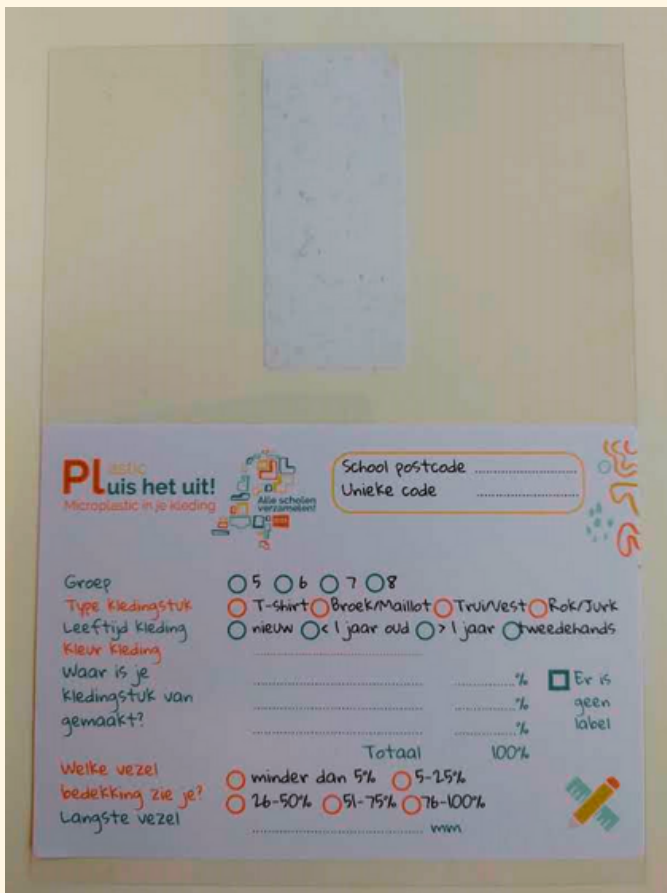 Plastic
Pluis het uit!
Microplastic in je kleding
Alle scholen
verzamelen!
School postcode ....................
Unieke code ....................
Groep 5 6 7 8
Type kledingstuk T-shirt Broek/Maillot Trui/Vest Rok/Jurk
Leeftijd kleding nieuw < 1 jaar oud > 1 jaar tweedehands
Kleur kleding ....................
Waar is je .................... .......... %
kledingstuk van .................... .......... %
gemaakt? .................... .......... %
Er is
geen
label
Totaal 100%
Welke vezel minder dan 5% 5-25%
bedekking zie je? 26-50% 51-75% 76-100%
Langste vezel .................... mm